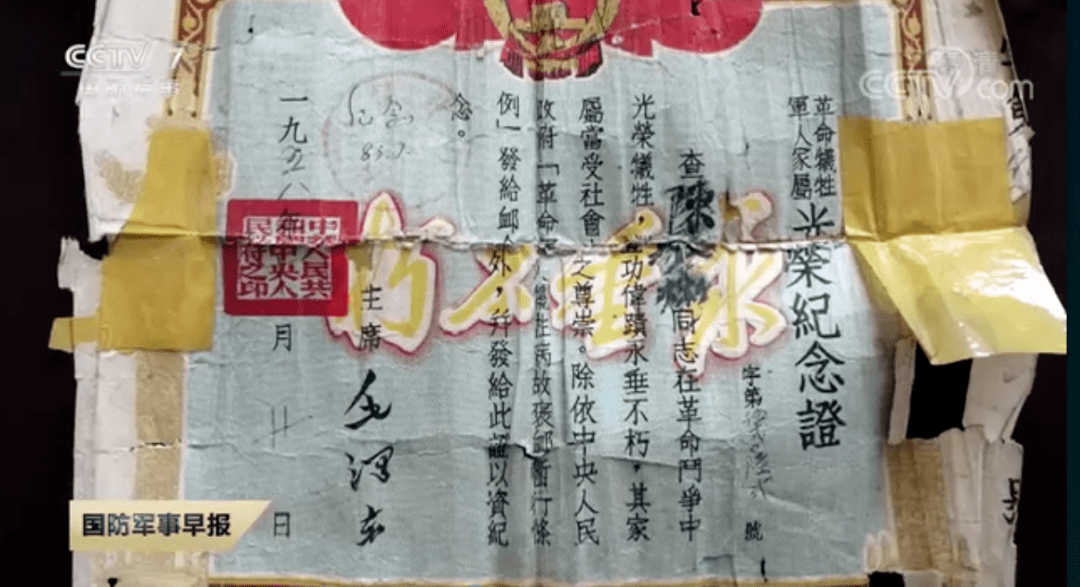 CCTV 7
国防军事
CCTV.com
革命犧牲
軍人家屬
光榮紀念證
字第
號
查陳
同志在革命鬥爭中
光榮犧牲,功偉蹟永垂不朽,其家
屬當受社會之尊崇。除依中央人民
政府「革命軍人犧牲病故褒卹暫行條
例」發給卹金外,并發給此證以資紀
念。
主席 毛澤东
一九五八年 月 日
永垂不朽
中華人民共和國中央人民政府之印
国防军事早报